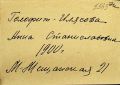 Голефит-Илясова
Анна Станиславовна
1900.
М. Жещанская 21